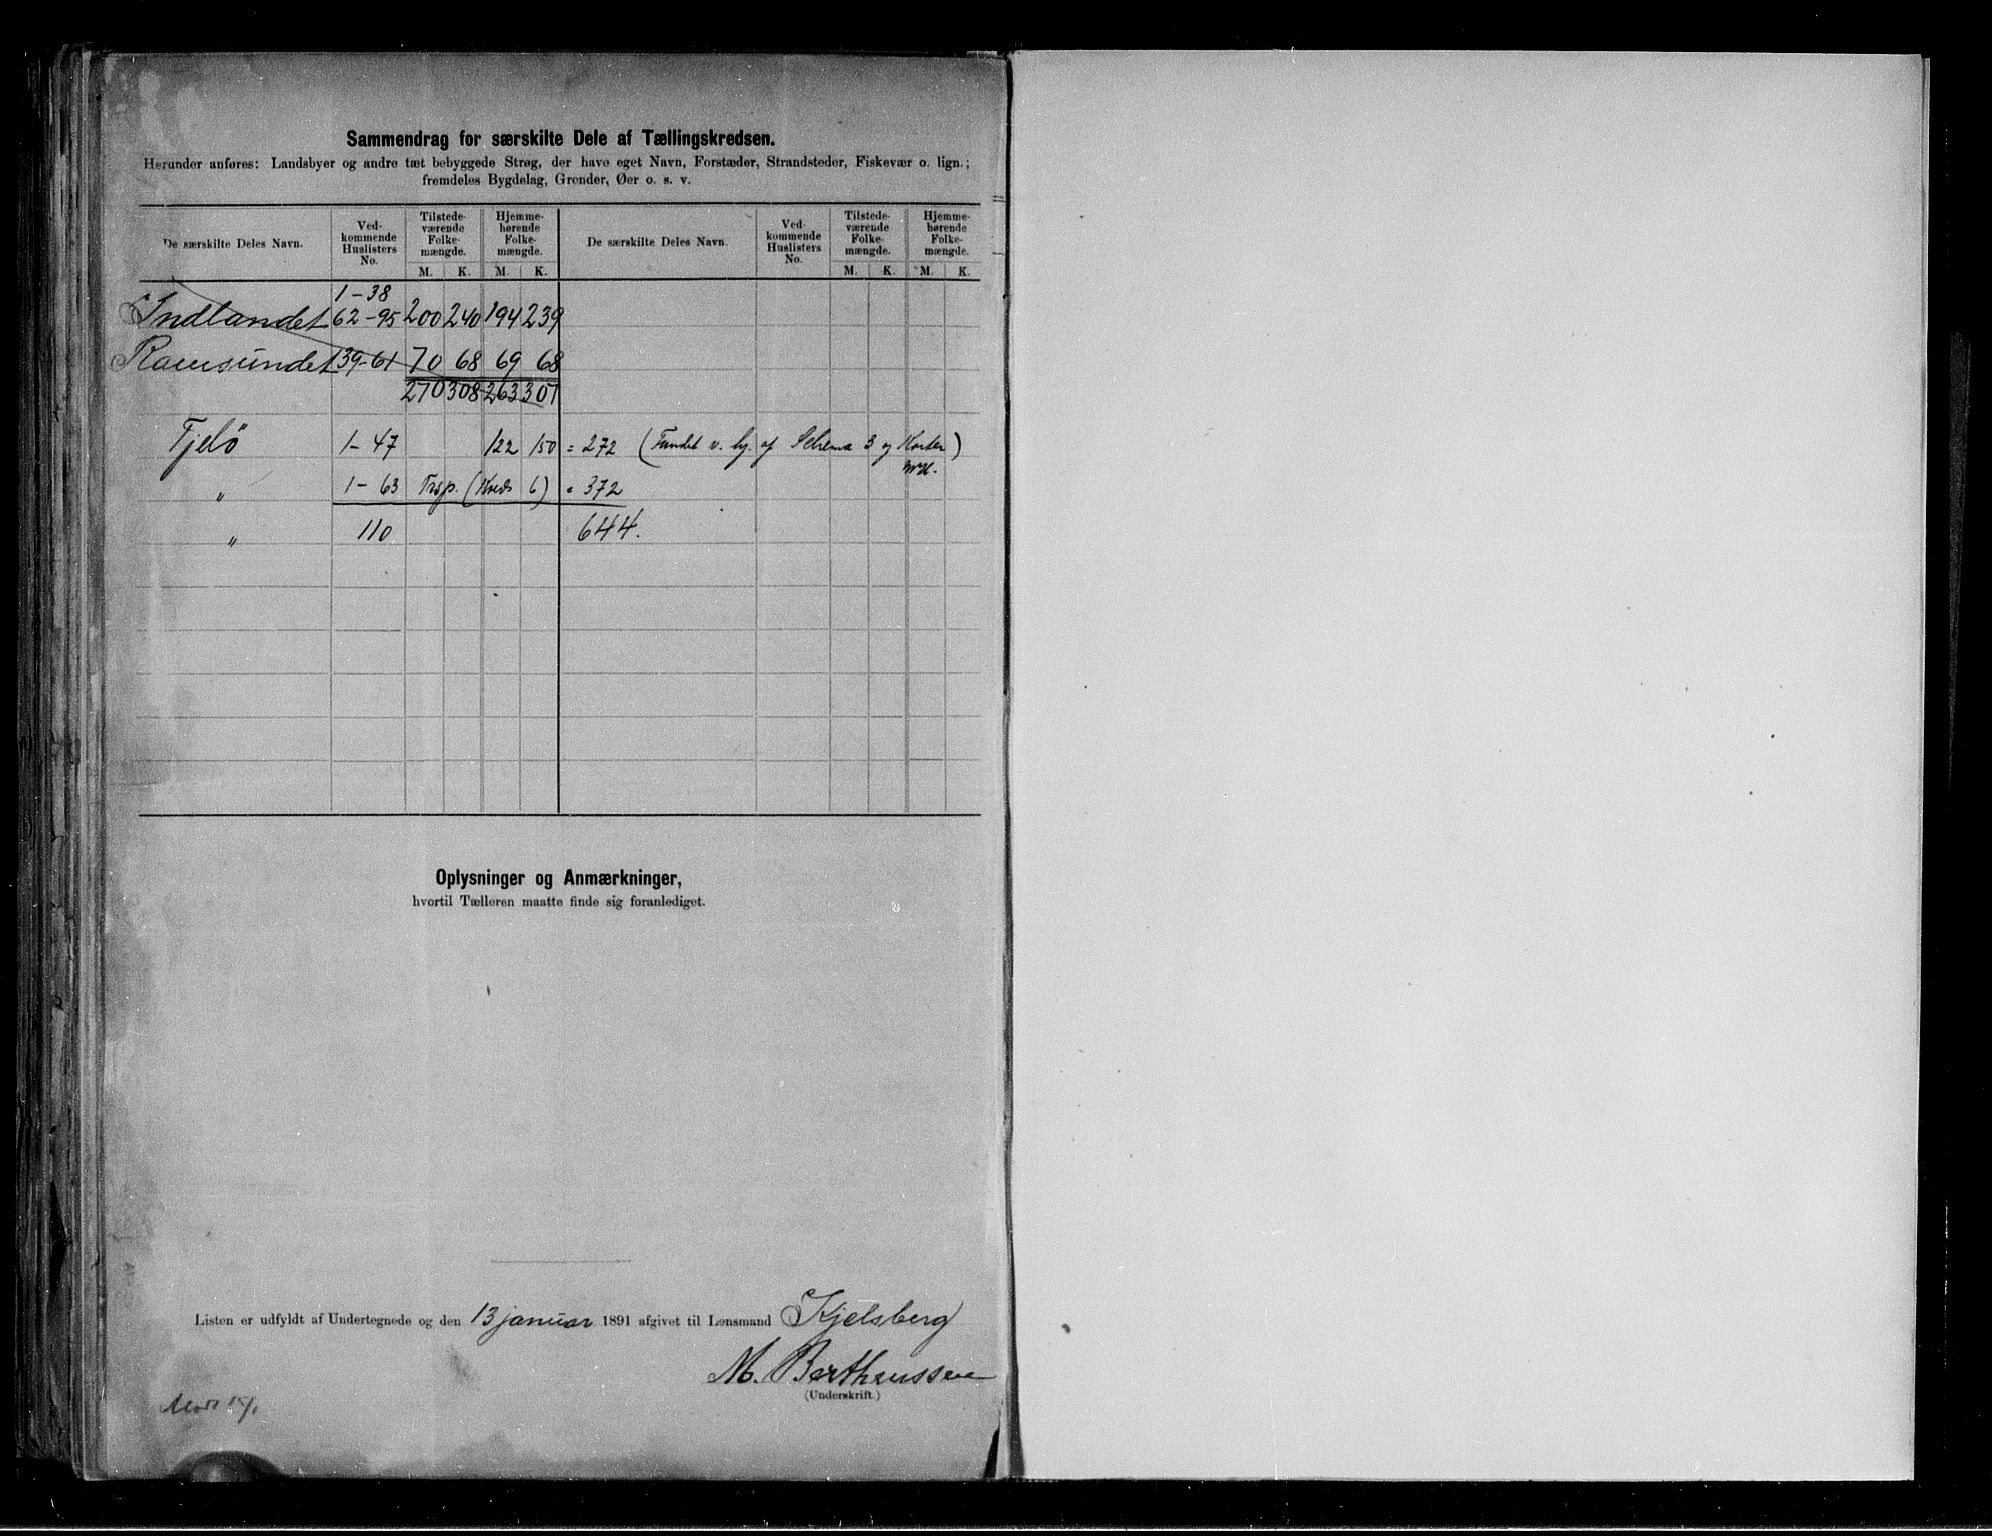 Sammendrag for særskilte Dele af Tællingskredsen.
Herunder anføres: Landsbyer og andre tæt bebyggede Strøg, der have eget Navn, Forstæder, Strandsteder, Fiskevær o. lign.;
fremdeles Bygdelag, Grender, Øer o. s. v.
De særskilte Deles Navn. Ved-kommende Huslisters No. Tilstede-værende Folke-mængde. Hjemme-hørende Folke-mængde. De særskilte Deles Navn. Ved-kommende Huslisters No. Tilstede-værende Folke-mængde. Hjemme-hørende Folke-mængde.
M. K. M. K. M. K. M. K.
1-38
Indlandet 62-95 200 240 194 239
Ramsundet 39-61 70 68 69 68
270 308 263 307
Tjelö 1-47 122 150 = 272 (Fundet v. Hj. af Schema 3 og Karter)
" 1-63 Trsp. (Kreds 6) = 372
" 110 644.
Oplysninger og Anmærkninger,
hvortil Tælleren maatte finde sig foranlediget.
Listen er udfyldt af Undertegnede og den 13 januar 1891 afgivet til Lensmand Kjelsberg
M. Bertheussen
(Underskrift.)